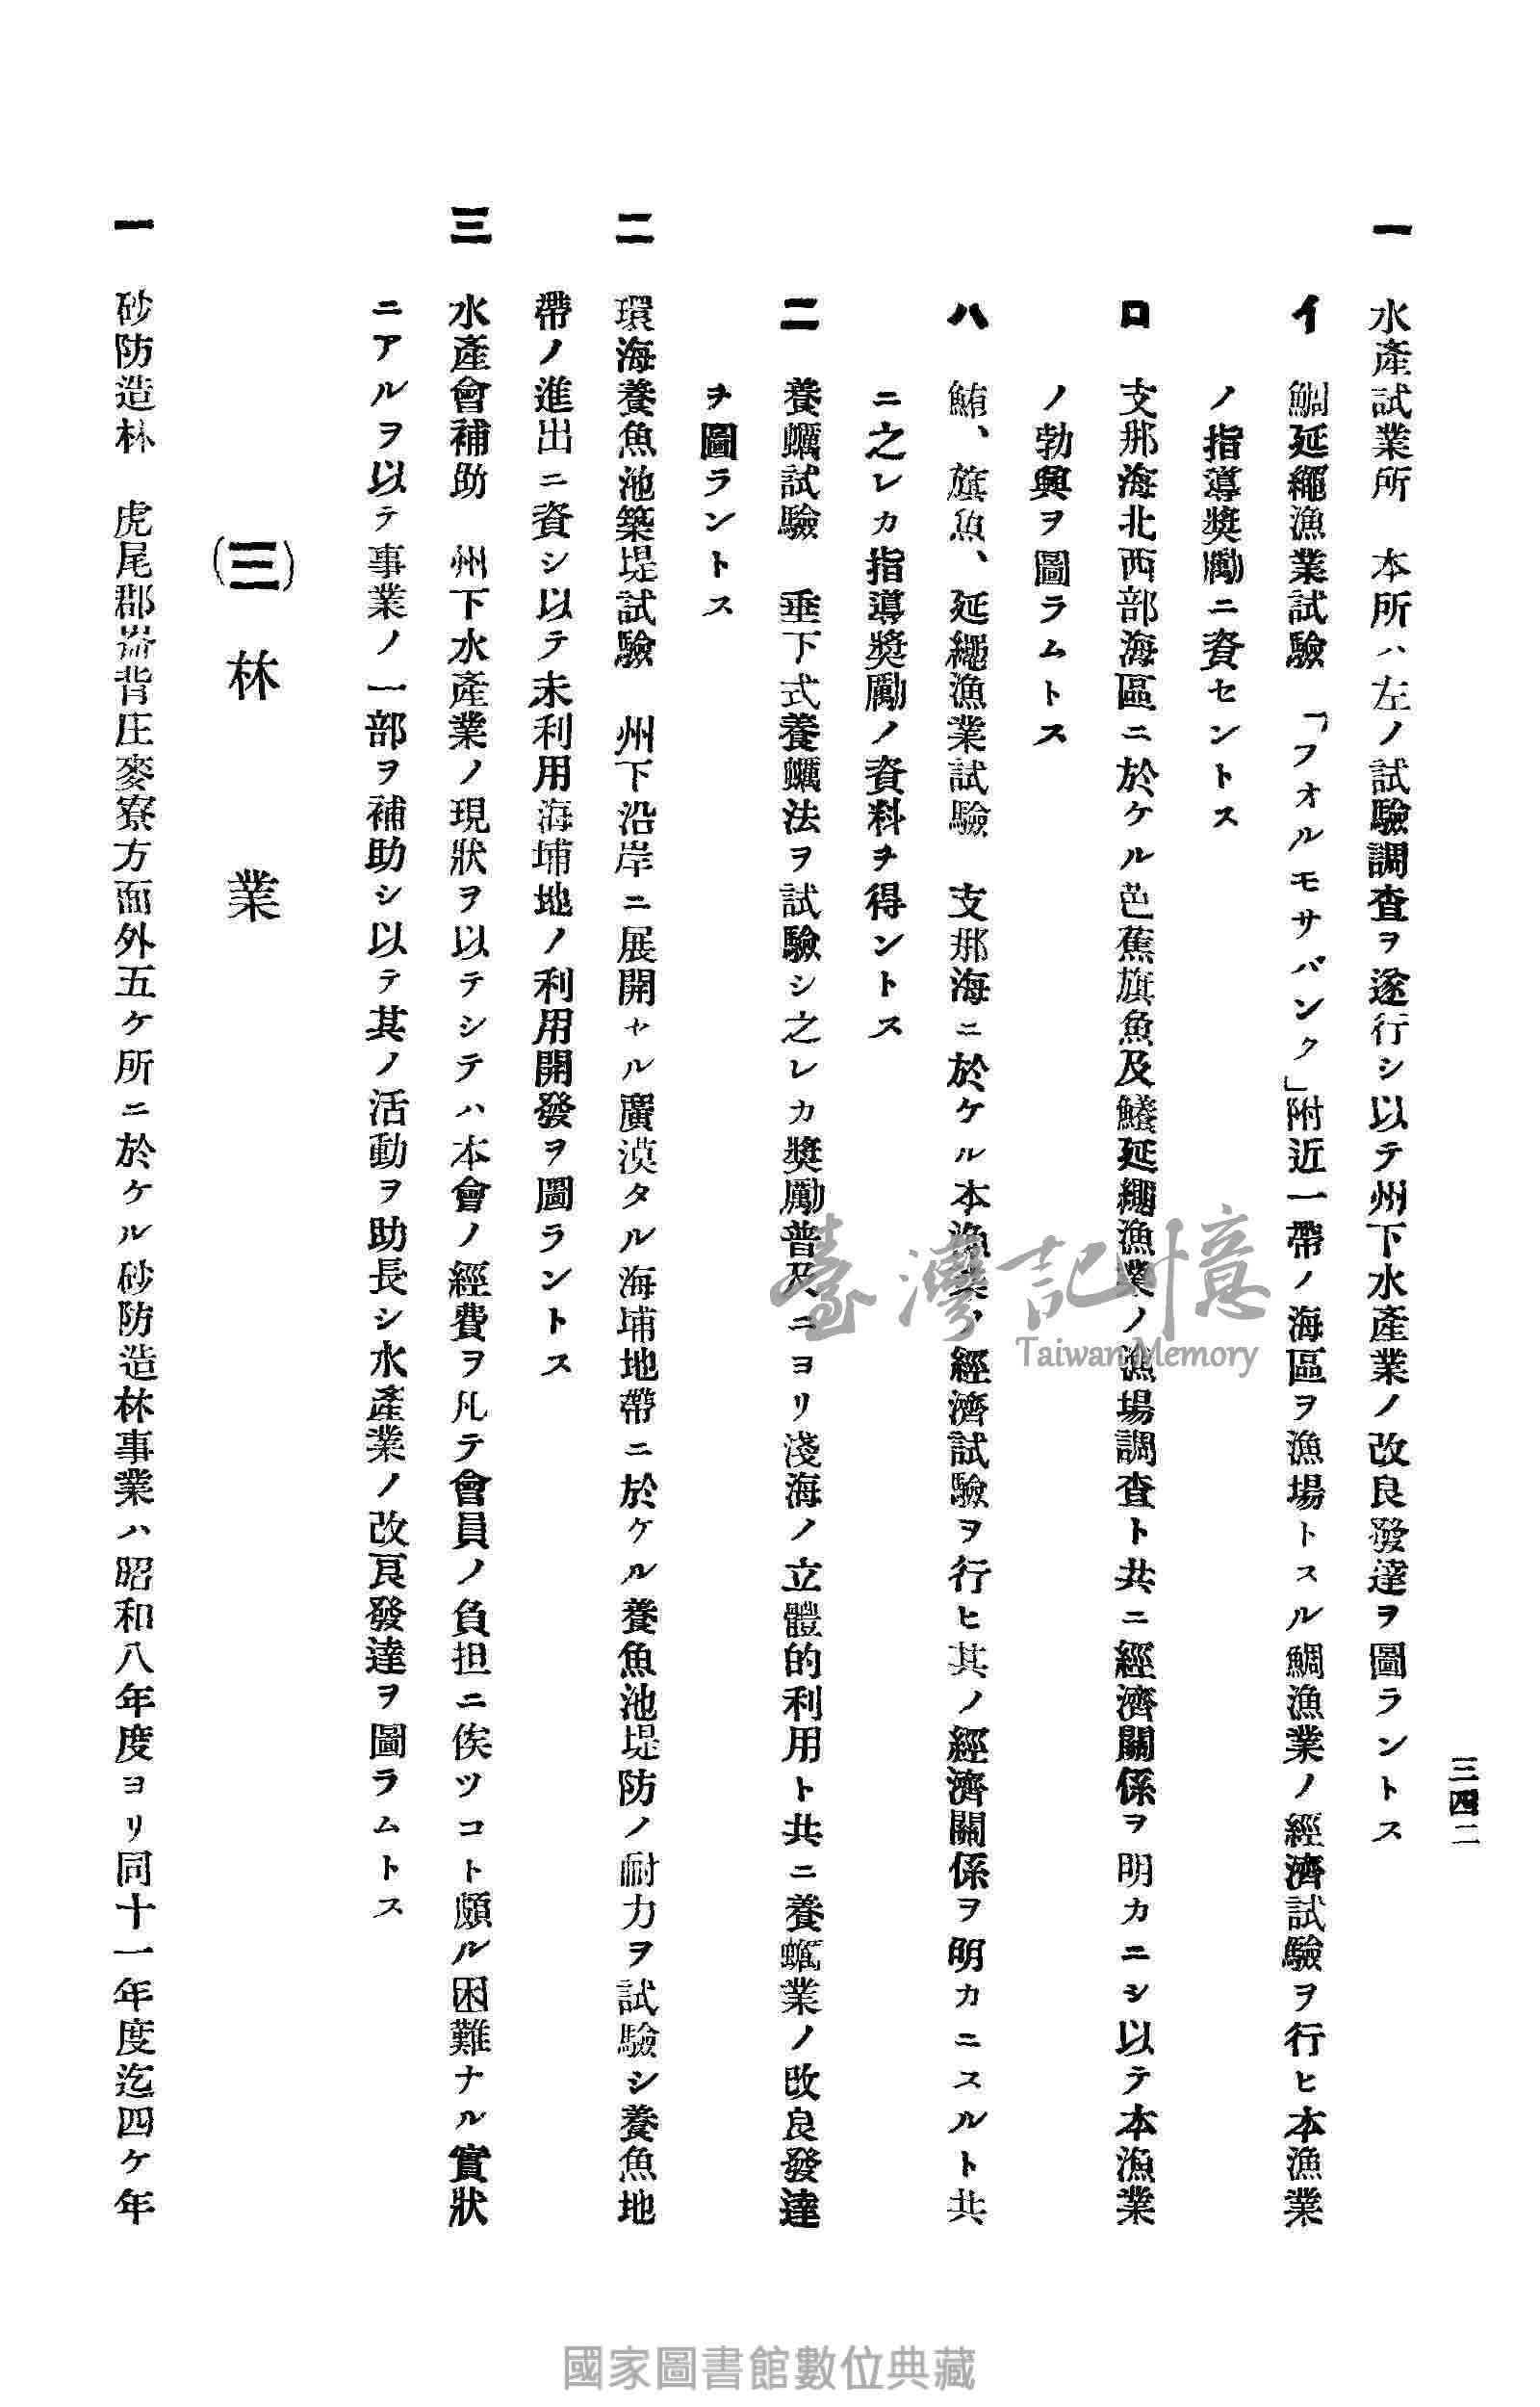 三四二
一　水產試業所　本所ハ左ノ試驗調查ヲ遂行シ以テ州下水產業ノ改良發達ヲ圖ラントス
イ　鯛延繩漁業試驗　「フオルモサバンク」附近一帶ノ海區ヲ漁場トスル鯛漁業ノ經濟試驗ヲ行ヒ本漁業
ノ指導奬勵ニ資セントス
ロ　支那海北西部海區ニ於ケル芭蕉旗魚及鱶延繩漁業ノ漁場調查ト共ニ經濟關係ヲ明カニシ以テ本漁業
ノ勃興ヲ圖ラムトス
ハ　鮪、旗魚、延繩漁業試驗　支那海ニ於ケル本漁業ノ經濟試驗ヲ行ヒ其ノ經濟關係ヲ明カニスルト共
ニ之レカ指導奬勵ノ資料ヲ得ントス
ニ　養蠣試驗　垂下式養蠣法ヲ試驗シ之レカ奬勵普及ニヨリ淺海ノ立體的利用ト共ニ養蠣業ノ改良發達
ヲ圖ラントス
二　環海養魚池築堤試驗　州下沿岸ニ展開セル廣漠タル海埔地帶ニ於ケル養魚池堤防ノ耐力ヲ試驗シ養魚地
帶ノ進出ニ資シ以テ未利用海埔地ノ利用開發ヲ圖ラントス
三　水產會補助　州下水產業ノ現狀ヲ以テシテハ本會ノ經費ヲ凡テ會員ノ負担ニ俟ツコト頗ル困難ナル實狀
ニアルヲ以テ事業ノ一部ヲ補助シ以テ其ノ活動ヲ助長シ水產業ノ改良發達ヲ圖ラムトス
(三)　林業
一　砂防造林　虎尾郡崙背庄麥寮方面外五ケ所ニ於ケル砂防造林事業ハ昭和八年度ヨリ同十一年度迄四ケ年
臺灣記憶
Taiwan Memory
國家圖書館數位典藏